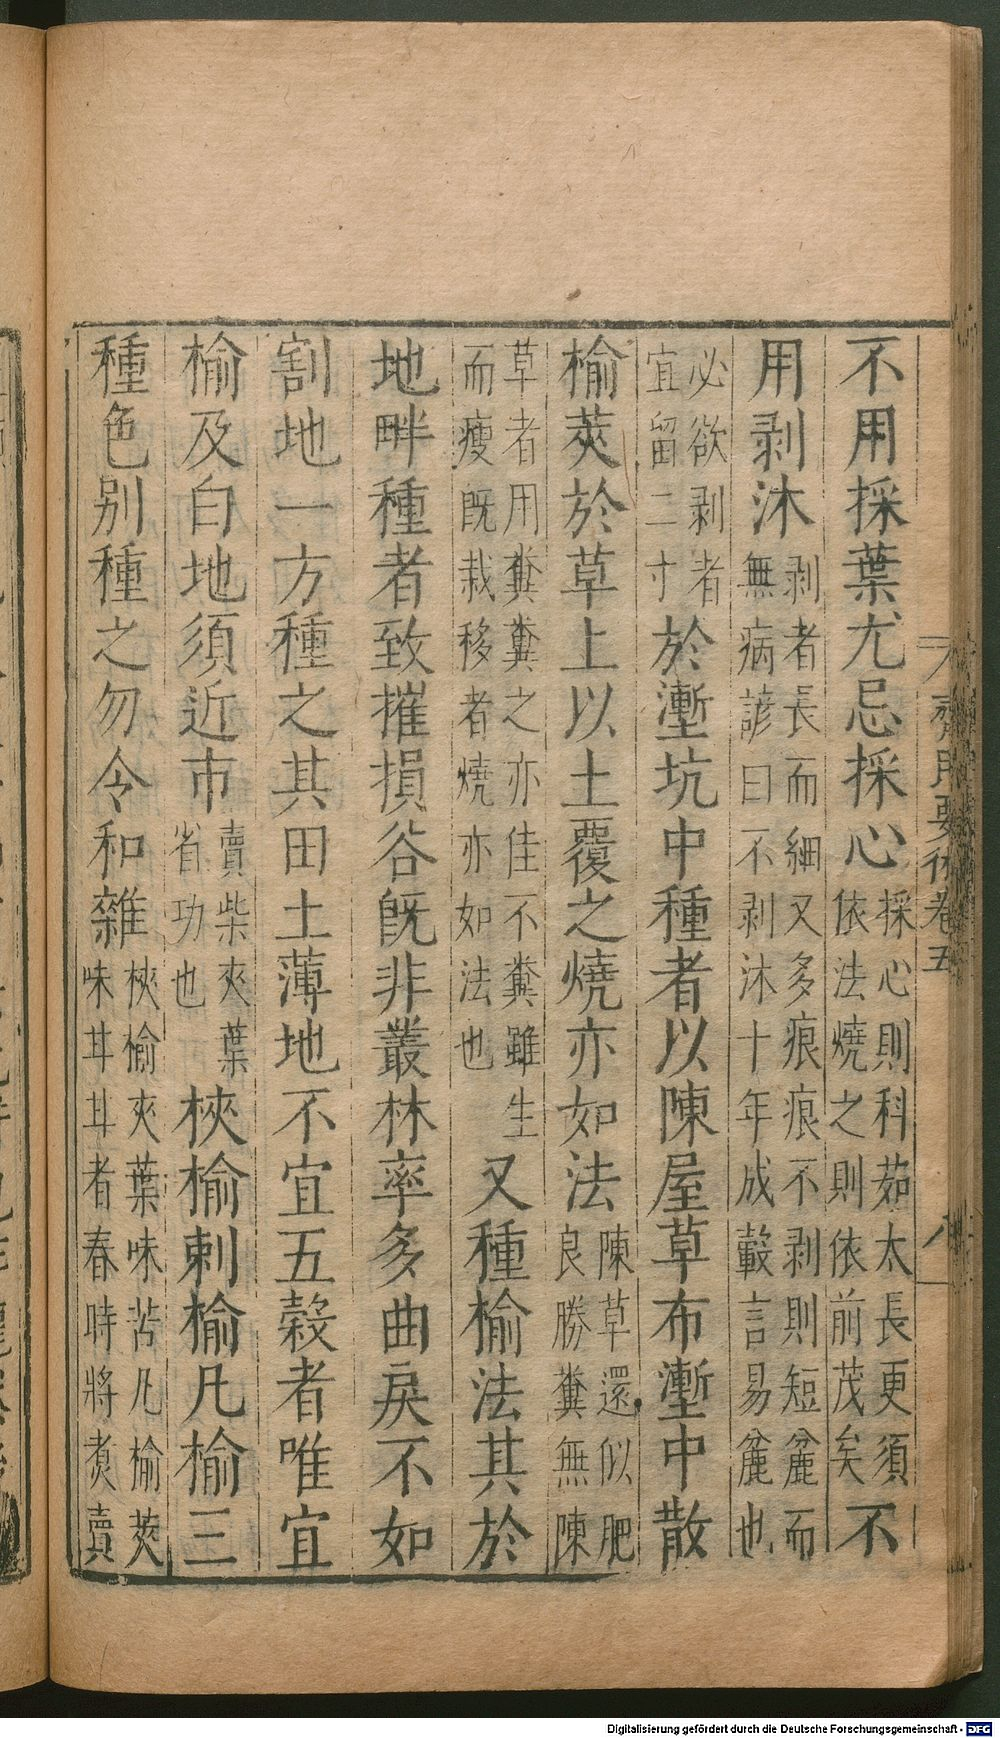 齊民要術卷五 八
不用採葉尤忌採心採心則科茹太長更須依法燒之則依前茂矣不
用剥沐剥者長而細又多痕痕不剥則短麄而無病諺曰不剥沐十年成轂言易麄也
必欲剥者宜留二寸於壍坑中種者以陳屋草布壍中散
榆莢於草上以土覆之燒亦如法陳草還似肥良勝糞無陳
草者用糞糞之亦佳不糞雖生而瘦既栽移者燒亦如法也又種榆法其於
地畔種者致摧損谷既非叢林率多曲戾不如
割地一方種之其田土薄地不宜五榖者唯宜
榆及白地須近市賣柴夾葉省功也梜榆刺榆凡榆三
種色别種之勿令和雜梜榆夾葉味苦凡榆莢味甘甘者春時將煑賣
Digitalisierung gefördert durch die Deutsche Forschungsgemeinschaft - DFG